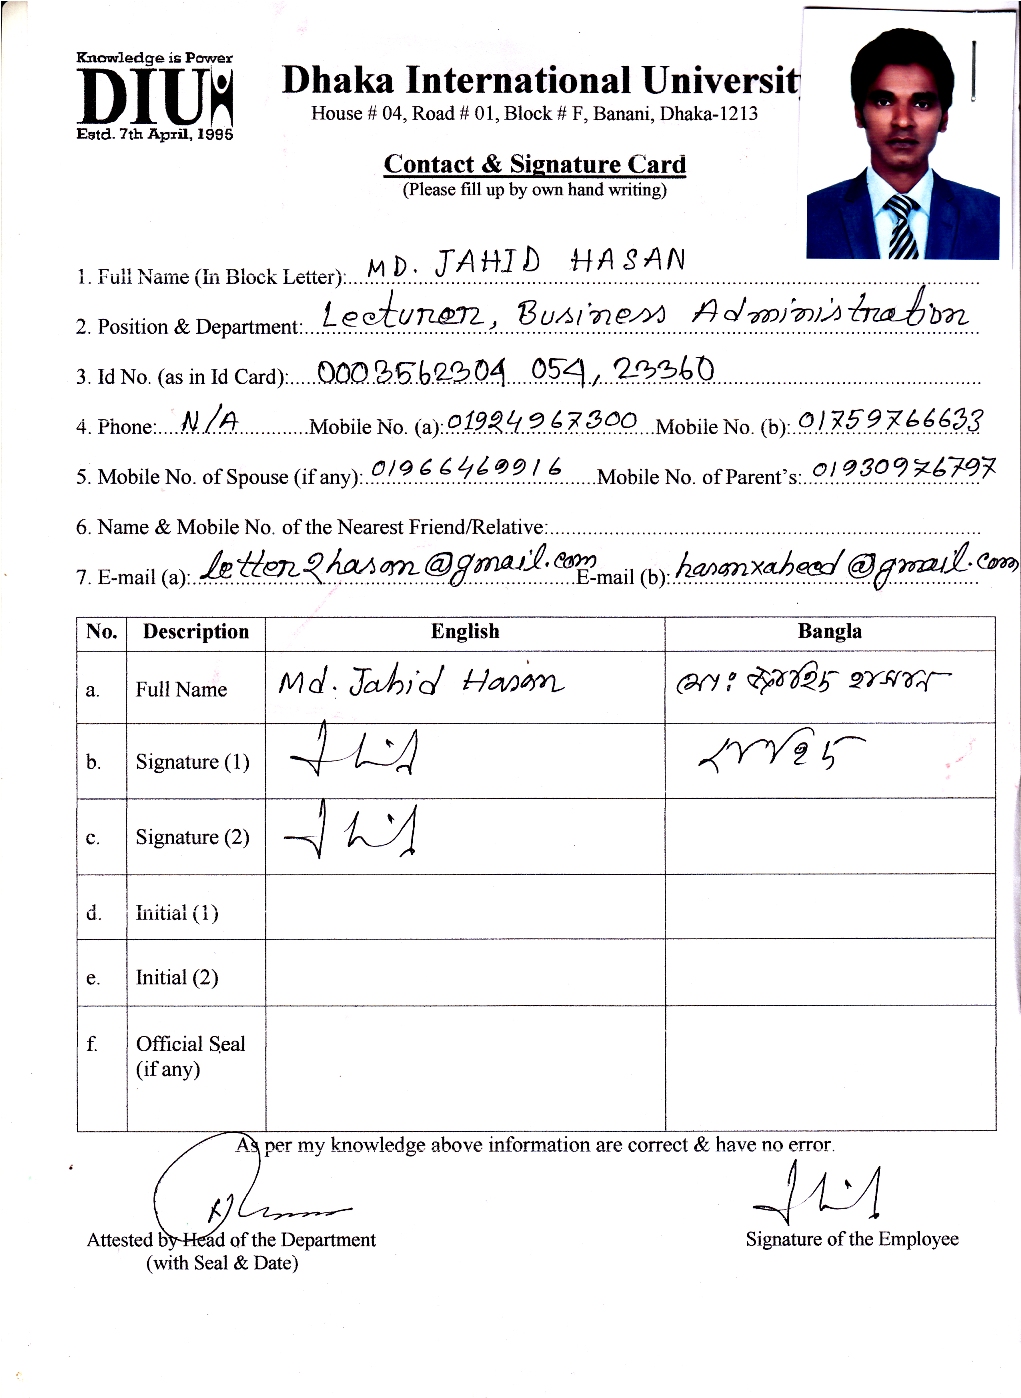 Knowledge is Power
DIU
Estd. 7th April, 1995
Dhaka International Universit
House # 04, Road # 01, Block # F, Banani, Dhaka-1213
Contact & Signature Card
(Please fill up by own hand writing)
1. Full Name (In Block Letter): MD. JAHID HASAN
2. Position & Department: Lecturer, Business Administration
3. Id No. (as in Id Card): 0003562304 054, 23360
4. Phone: N/A Mobile No. (a): 01924967300 Mobile No. (b): 01759766633
5. Mobile No. of Spouse (if any): 01966469916 Mobile No. of Parent's: 01930976797
6. Name & Mobile No. of the Nearest Friend/Relative:
7. E-mail (a): letter2hasan@gmail.com E-mail (b): hasanxaheed@gmail.com
No. Description English Bangla
a. Full Name Md. Jahid Hasan মোঃ জাহিদ হাসান
b. Signature (1) জাহিদ
c. Signature (2)
d. Initial (1)
e. Initial (2)
f. Official Seal
(if any)
As per my knowledge above information are correct & have no error.
Attested by Head of the Department Signature of the Employee
(with Seal & Date)